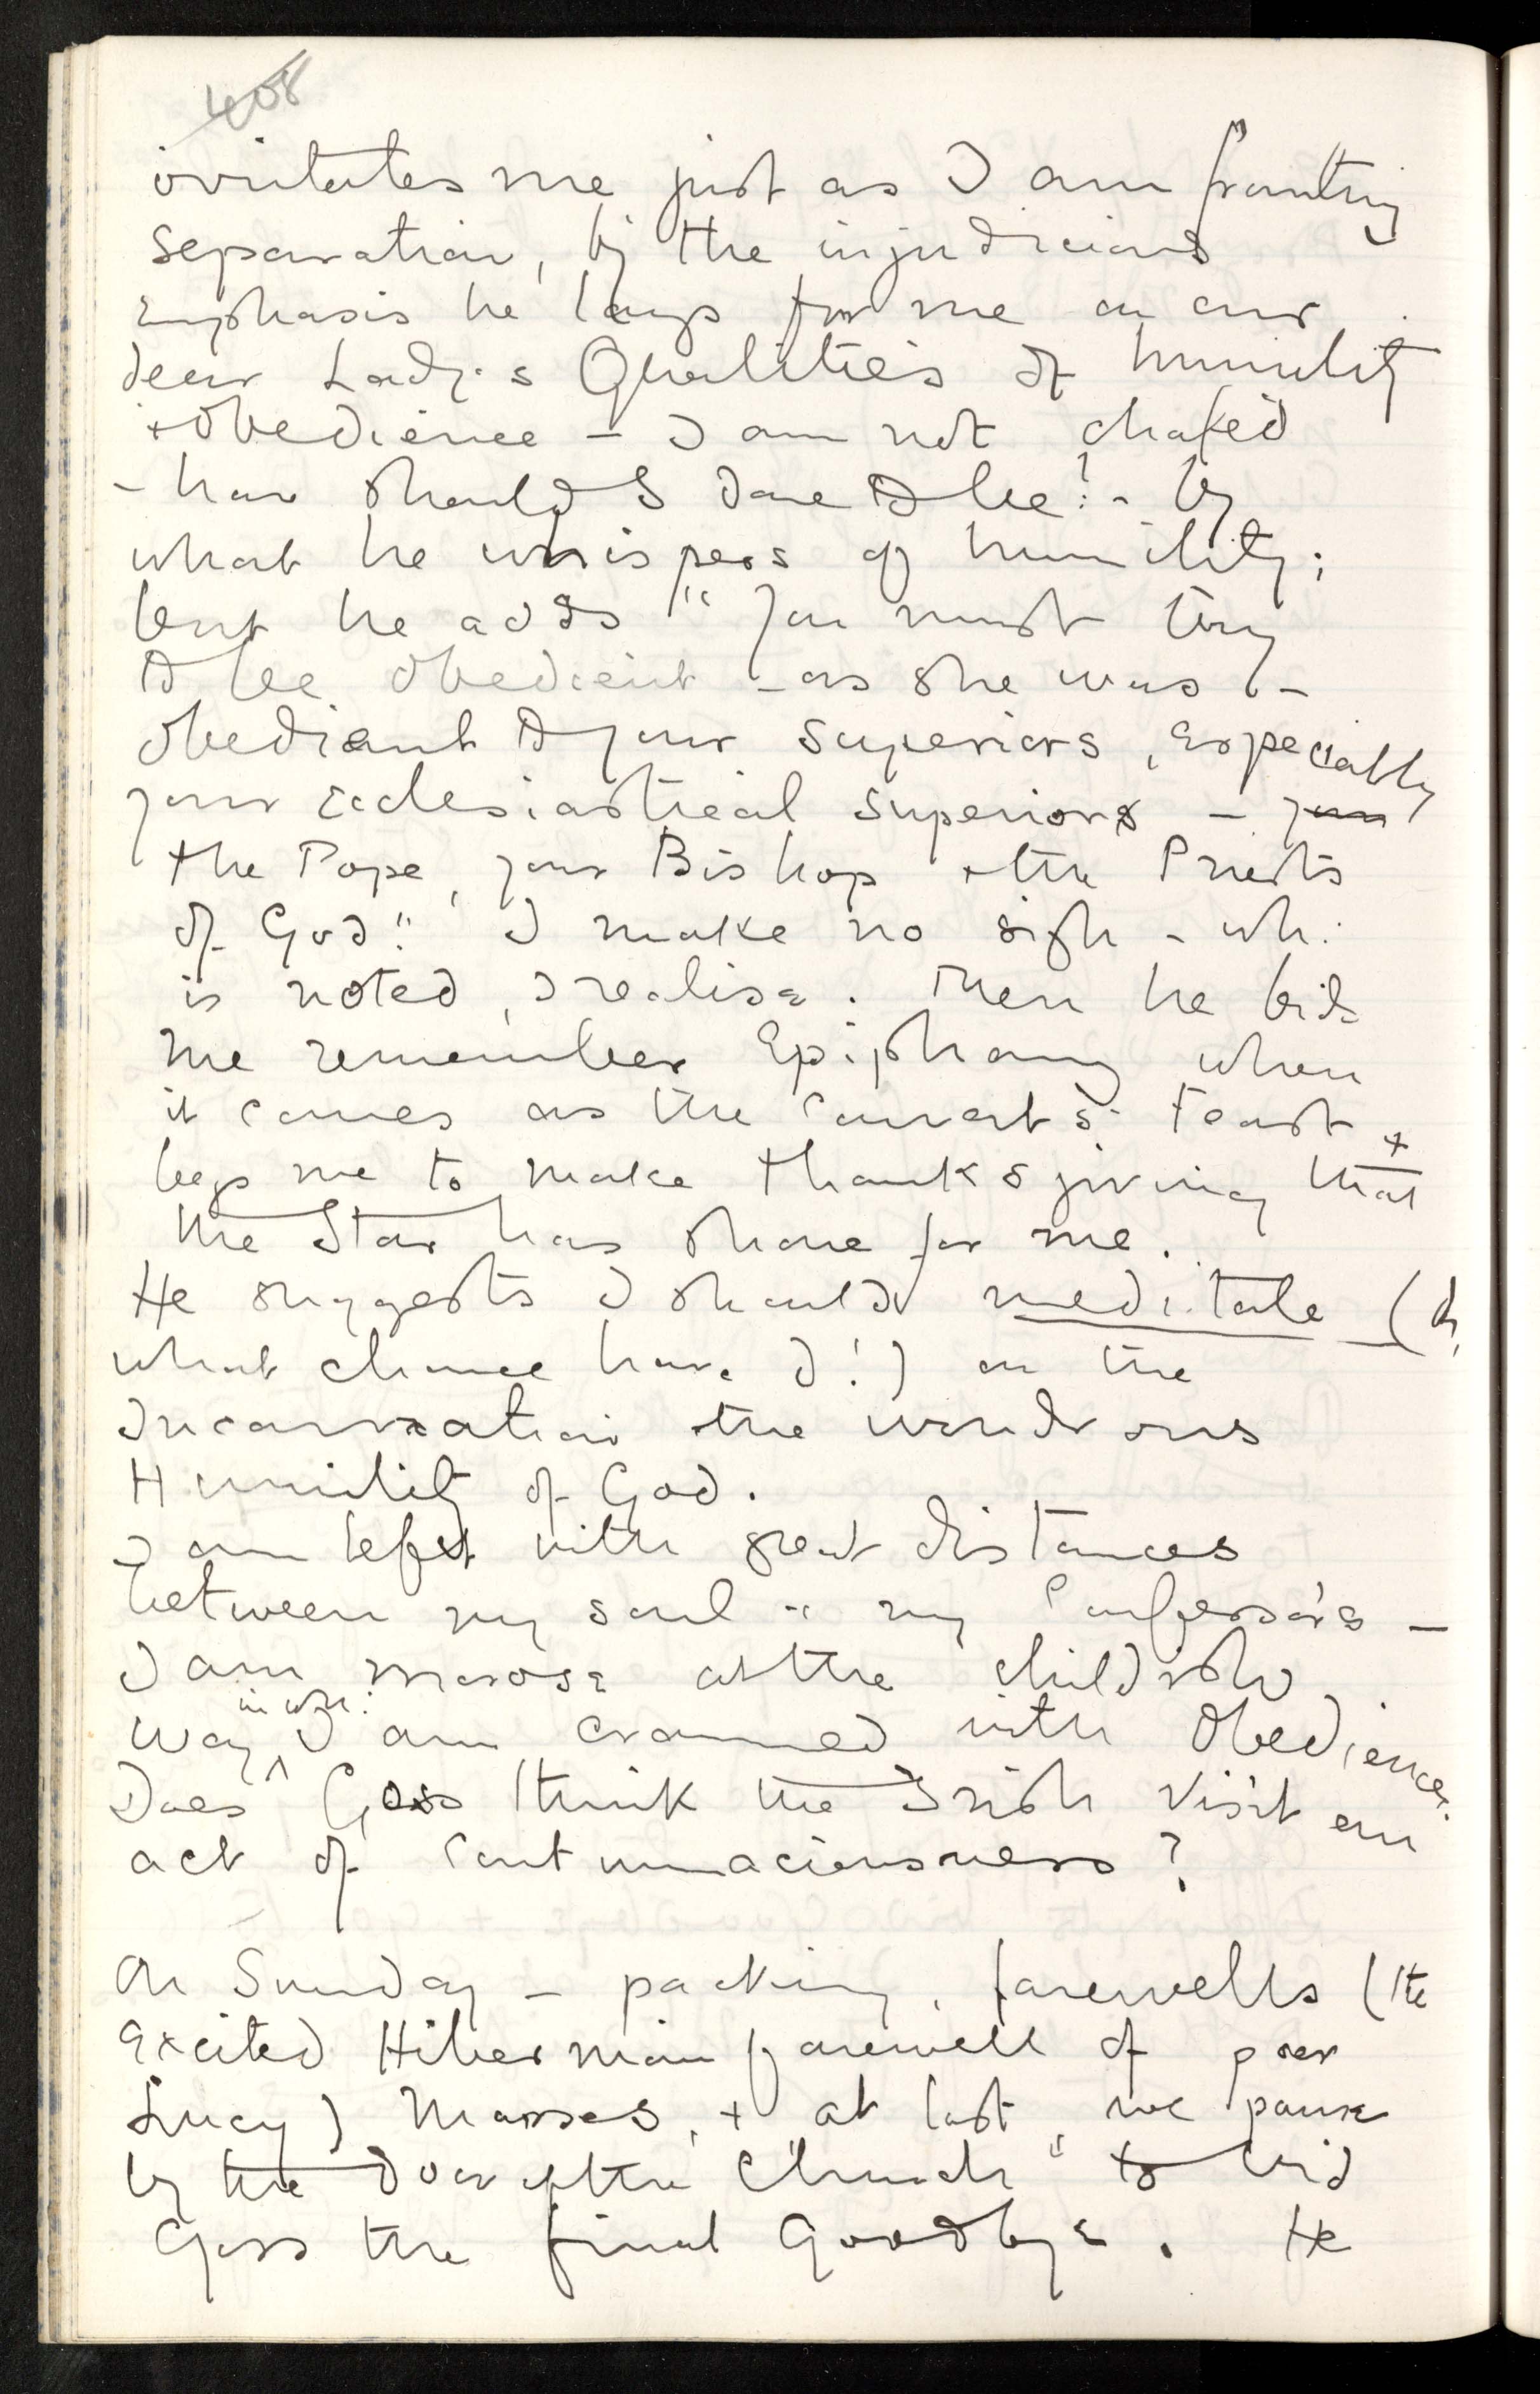 408
irritates me just as I am fronting
separation, by the injudicious
emphasis he lays for me on our
dear Lady's Qualities of humility
+ obedience – I am not chafed
– how should I dare to be? – by
what he whispers of humility;
but he adds "You must try
to be obedient – as she was –
obedient to your superiors, especially
your Ecclesiastical superiors – your
the Pope, your Bishop + the Priests
of God". I make no sign – wh:
is noted, I realise. Then he bids
me remember Epiphany when
it comes as the Convert's Feast +
begs me to make thanksgiving that
the Star has shone for me.
He suggests I should meditate (
what chance have I!) on the
Incarnation + the wondrous
Humility of God.
I am left with great distances
between my soul + my Confessor's –
I am morose at the childish
way in wh: I am crammed with Obedience.
Does Goss think the Irish Visit an
act of Contumaciousness?
On Sunday – packing, farewells (the
excited Hibernian farewell of poor
Lucy) Masses, + at last, we pause
by the door of the "Church" to bid
Goss the final Goodbye. He